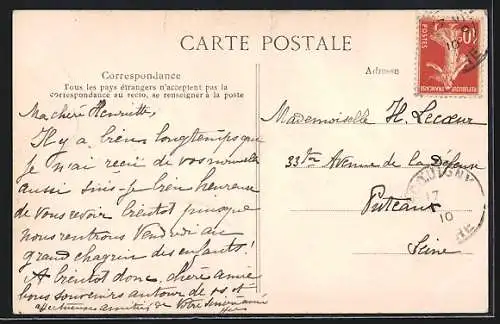 CARTE POSTALE
Correspondance
Tous les pays étrangers n'acceptent pas la
correspondance au recto, se renseigner à la poste
Adresse
POSTES
10
REPUBLIQUE FRANÇAISE
Ma chère Henriette,
Il y a bien longtemps que
je n'ai reçu de vos nouvelles
aussi suis-je bien heureuse
de vous revoir bientôt puisque
nous rentrons Vendredi au
grand chagrin des enfants!
A bientôt donc, chère amie
bons souvenirs autour de vs et
affectueuses amitiés de Votre
Mademoiselle H. Lecœur
33 ter Avenue de la Défense
Puteaux
Seine
17
10